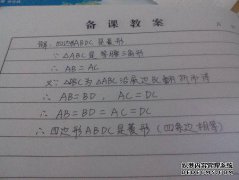 备课教案
解：四边形ABDC是菱形
∵ △ABC是等腰三角形
∴ AB=AC
又∵ △DBC为△ABC沿底边BC翻折所得
∴ AB=BD，AC=DC
∴ AB=BD=AC=DC
∴ 四边形ABDC是菱形（四条边相等）